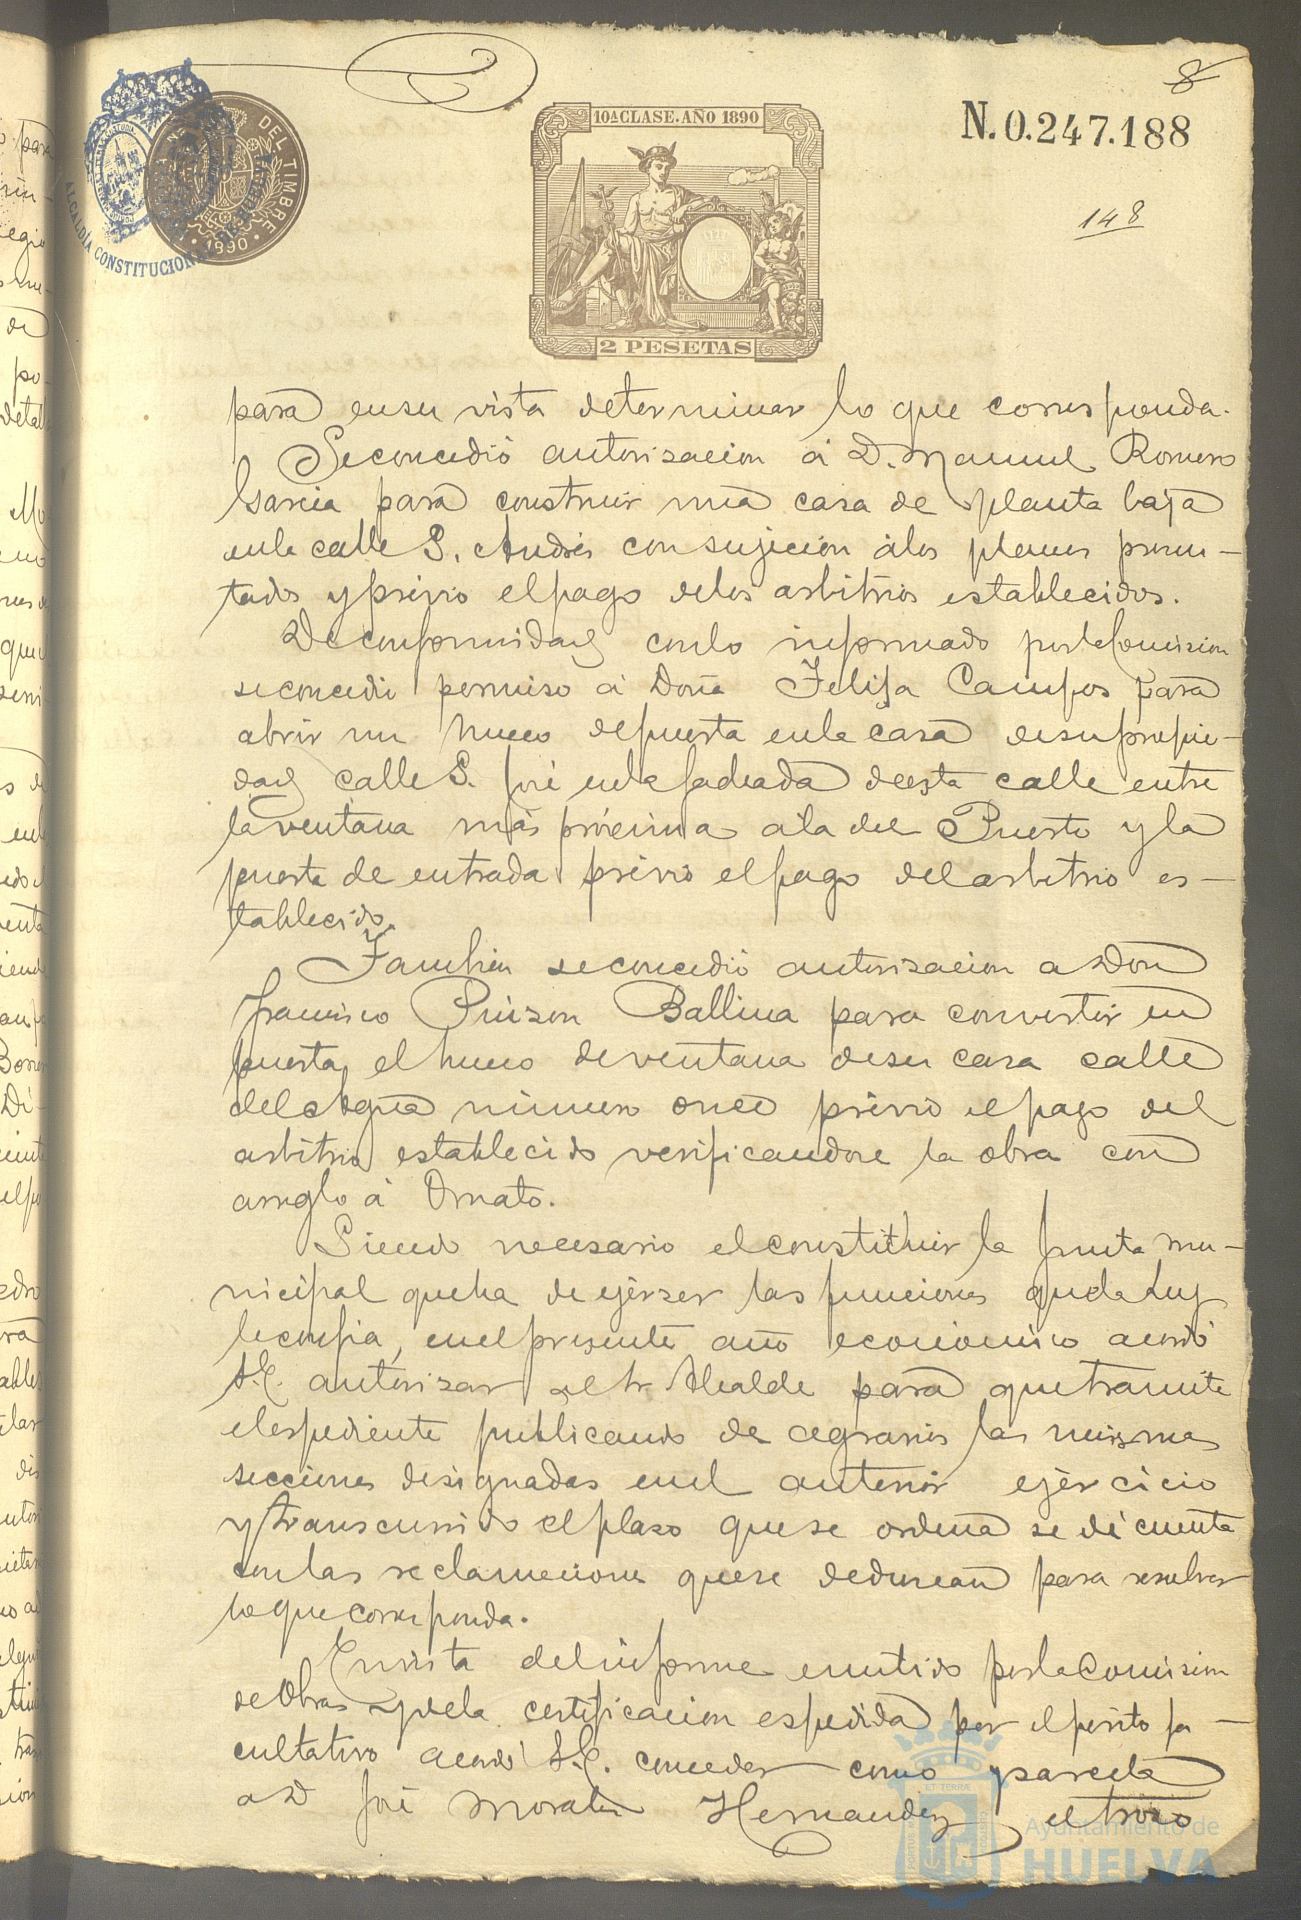 8
10ª CLASE. AÑO 1890
N.0.247.188
DEL TIMBRE
1890
ALCALDÍA CONSTITUCIONAL
148
2 PESETAS
para ensu vista determinar lo que corresponda.
Seconcedió autorisacion á D. Manuel Romero
Garcia para construir una casa de planta baja
enla calle S. Andrés con sujecion álos planos presen-
tados yprévio elpago delos arbitrios establecidos.
De conformidad conlo informado porlaComision
seconcedió permiso á Doña Felisa Campos para
abrir un hueco depuerta enla casa desupropie-
dad calle S. José enlafachada deesta calle entre
laventana más próxima ála del Puerto y la
puerta de entrada prévio elpago delarbitrio es-
tablecido.
Tambien seconcedió autorisacion a Don
Francisco Pinzon Ballina para convertir en
puerta el hueco deventana desu casa calle
delAgua número once prévio elpago del
arbitrio establecido verificandose la obra con
arreglo á Ornato.
Siendo necesario elconstituir la Junta mu-
nicipal queha de ejerser las funciones quelaLey
leconfia, enelpresente año económico acordó
S.E. autorizar al Sr. Alcalde para quetramite
elespediente publicando las mismas
secciones designadas enel anterior ejércicio
ytranscurrido elplaso quese ordena se dé cuenta
conlas reclamaciones quese dedusean para resolver
loquecorresponda.
Envista delinforme emitido porlaComision
deObras ydela certificacion espedida por elperito fa-
cultativo acordó S.E. conceder como parcela
a D José Morales Hernandez el troso
Ayuntamiento de
HUELVA